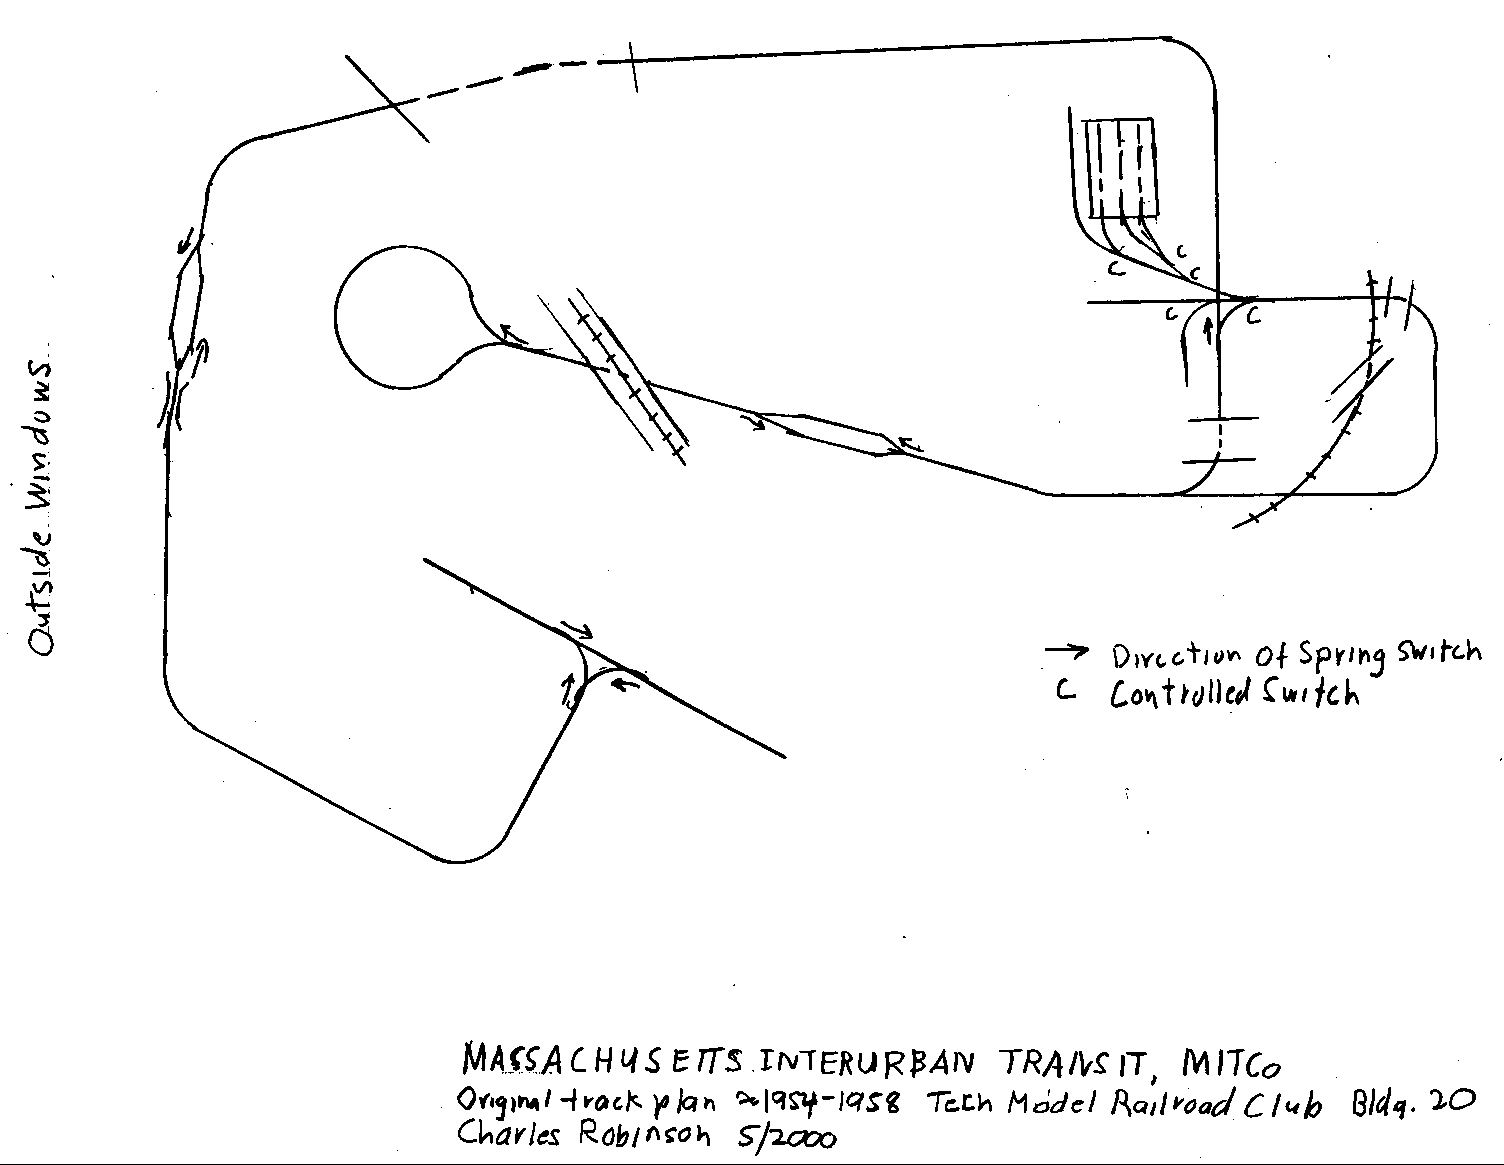 Outside Windows
C
C
C
C
C
→ Direction of Spring Switch
C Controlled Switch
MASSACHUSETTS INTERURBAN TRANSIT, MITCo
Original track plan ≈1954-1958 Tech Model Railroad Club Bldg. 20
Charles Robinson 5/2000